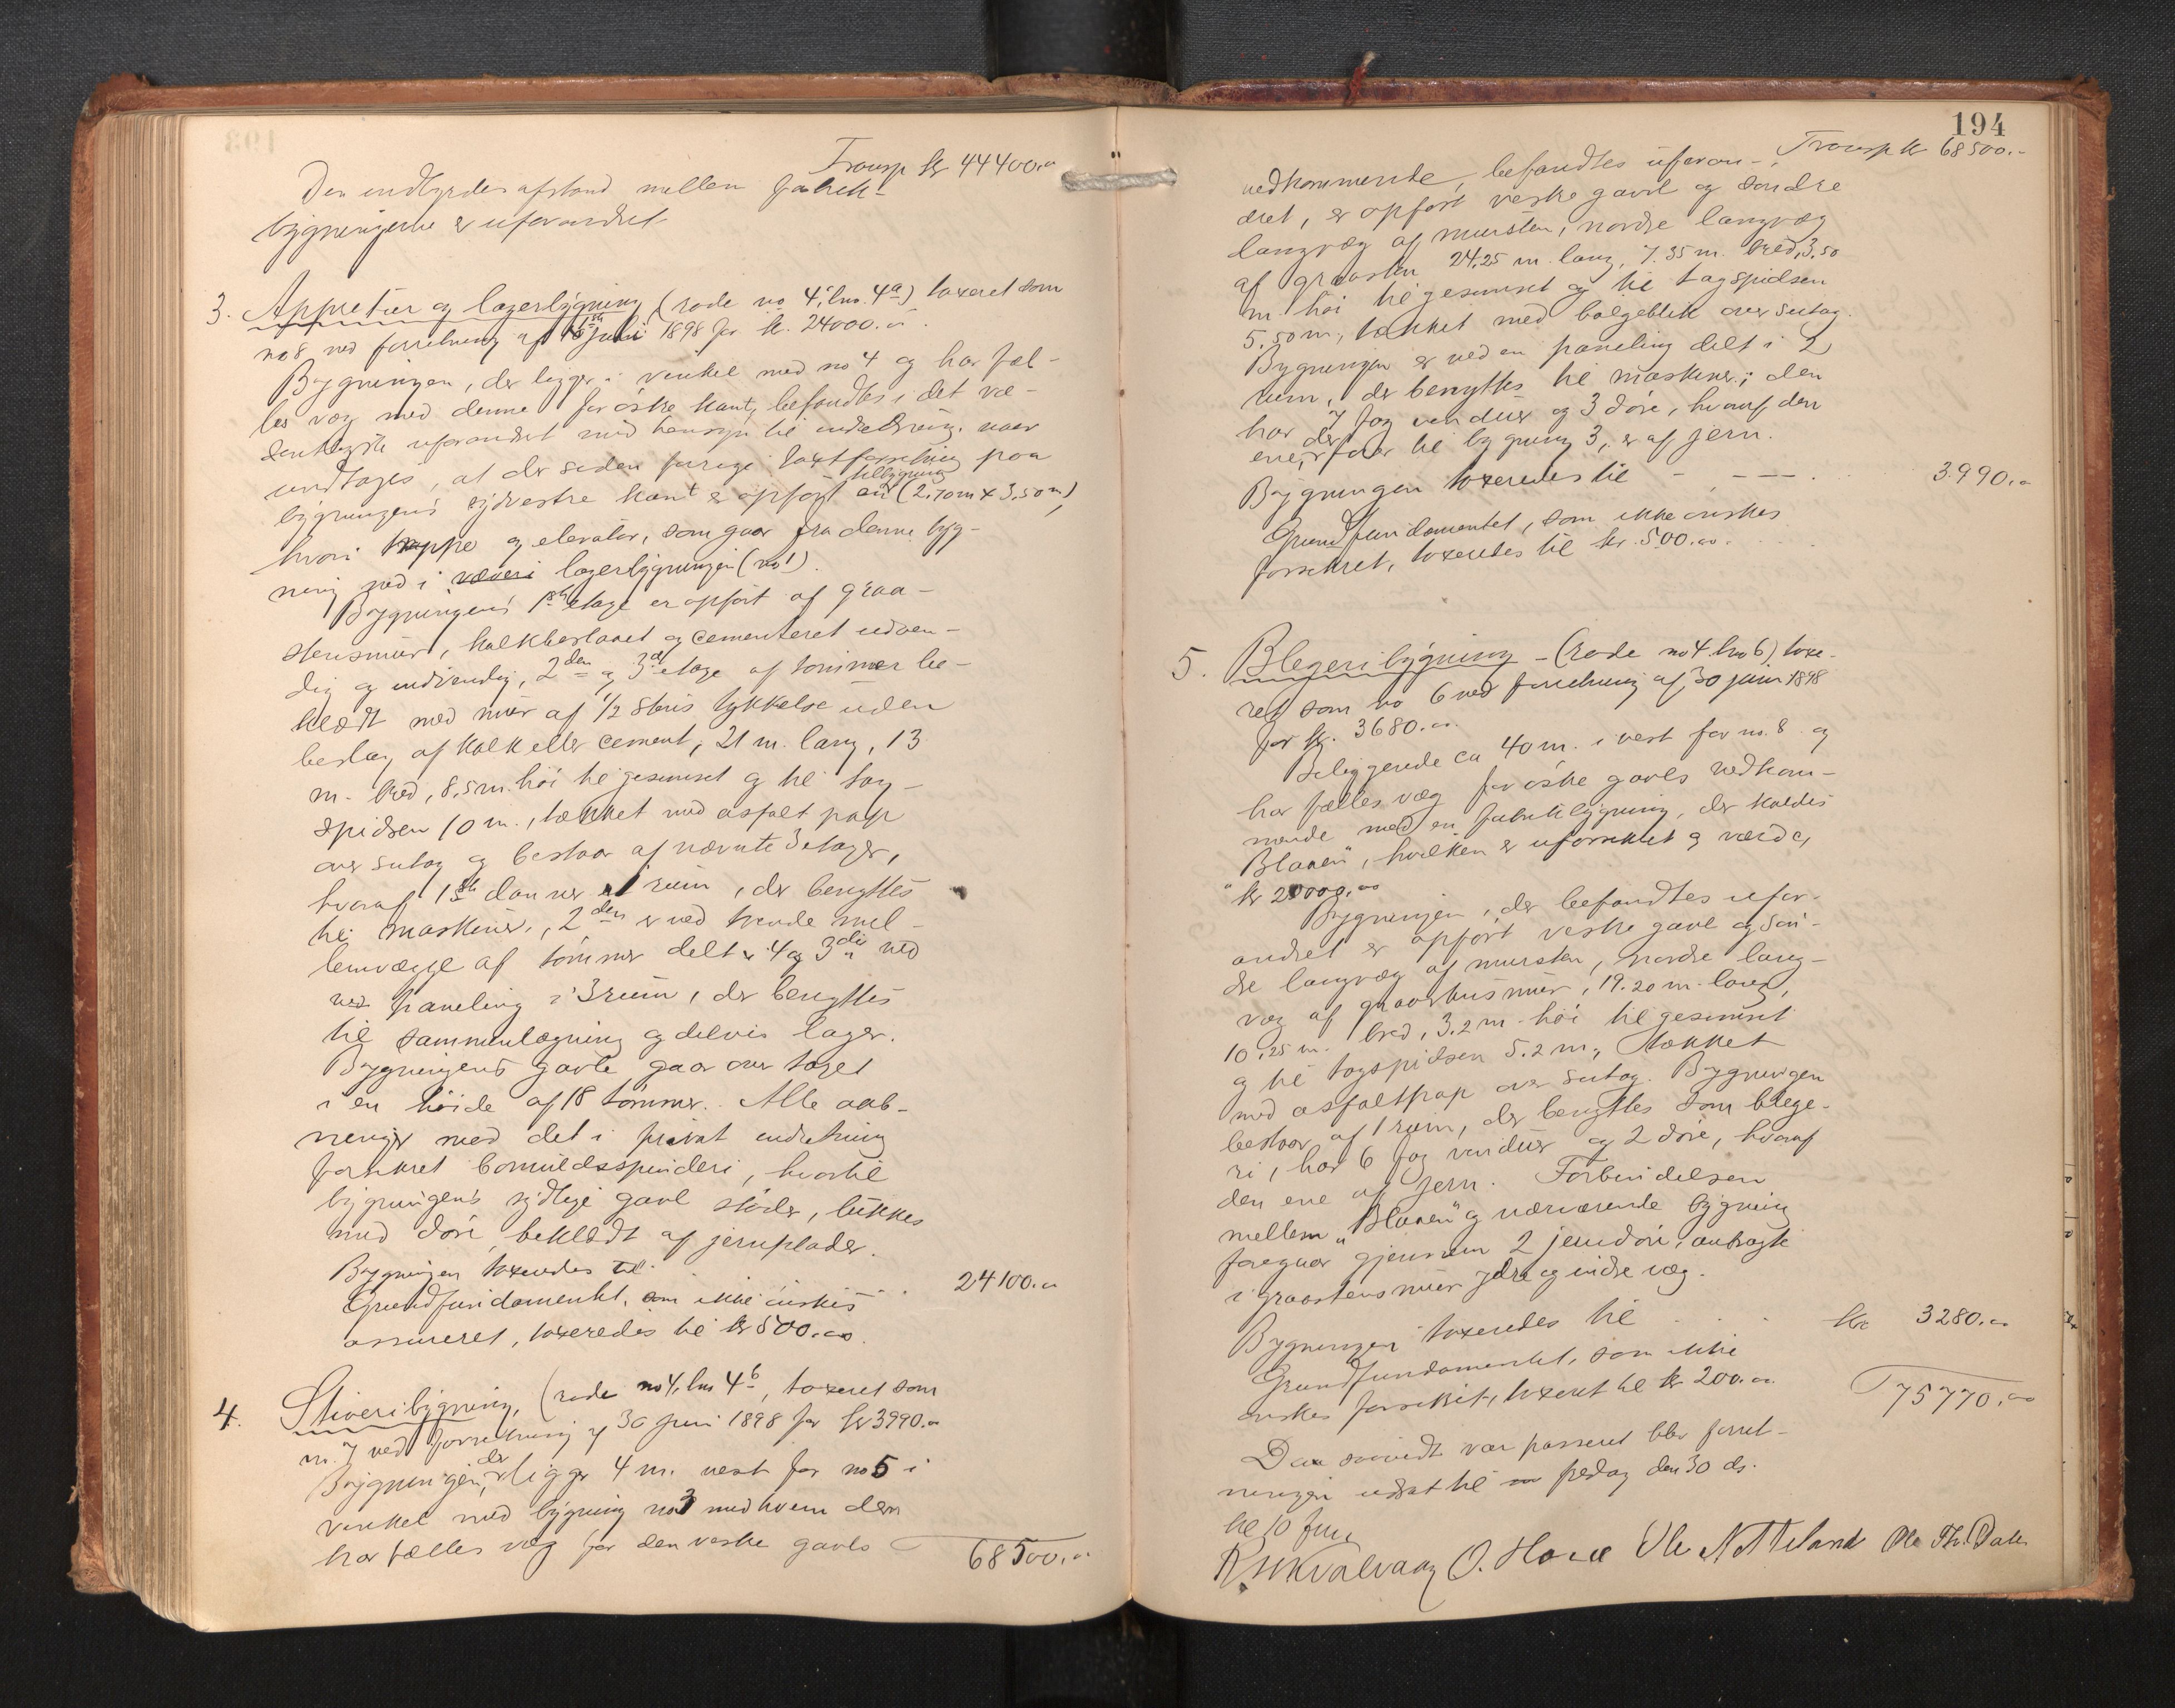 Transp kr 44400.00
Den indbyrdes afstand mellem fabrik-
bygningerne er uforandret
3. Appretur og lagerbygning (rode no 4, lno. 4a) taxeret som
no 8 ved forretning af 1ste juli 1898 for kr. 24000.00.
Bygningen, der ligger i vinkel med no 4 og har fæl-
les væg med denne for østre kant, befandtes i det væ-
sentligste uforandret med hensyn til indredning naar
undtages, at der siden forrige taxtforretning paa
bygningens sydvestre kant er opført en tilbygning (2.70 m x 3.50 m),
hvori trappe og elevator, som gaar fra denne byg-
ning ned i væveri lagerbygningen (no 1).
Bygningens 1ste etage er opført af graa-
stensmur, kalkbeslaaet og cementeret udven-
dig og indvendig, 2den og 3die etage af tømmer be-
klædt med mur af 1/2 stens tykkelse uden
beslag af kalk eller cement, 21 m. lang, 13
m. bred, 8.5 m. høi til gesimset og til tag-
spidsen 10 m., tækket med asfalt pap
over sutag og bestaar af nævnte 3 etager,
hvoraf 1ste danner 1 rum, der benyttes
til maskiner, 2den er ved trende mel-
lemvægge af tømmer delt i 4 og 3die ved
ved paneling i 3 rum, der benyttes
til sammenlægning og delvis lager.
Bygningens gavle gaar over taget
i en høide af 18 tommer. Alle aab-
ninger med det i privat indretning
forsikret bomuldsspinderi, hvortil
bygningens sydlige gavl støder, lukkes
med døre beklædt af jernplader.
Bygningen taxeredes til . . 24100.00
Grundfundamentet, som ikke ønskes
assureret, taxeredes til kr 500.00.
4. Stiveribygning, (rode no 4, lno 4b, taxeret som
no. 7 ved forretning af 30 juni 1898 for kr 3990.00
Bygningen, der ligger 4 m. vest for no 5 i
vinkel med bygning no 3 med hvem den
har fælles væg for den vestre gavls
68500.00
194
Transp kr 68500.-
vedkommende, befandtes uforan-
dret, er opført vestre gavl og søndre
langvæg af mursten, nordre langvæg
af graasten 24.25 m. lang, 7.35 m. bred, 3.50
m. høi til gesimset og til tagspidsen
5.50 m., tækket med bølgeblik over sutag.
Bygningen er ved en paneling delt i 2
rum, der benyttes til maskiner; den
har 7 fag vinduer og 3 døre, hvoraf den
ene, der fører til bygning 3, er af jern.
Bygningen taxeredes til - - - - . 3990.00
Grundfundamentet, som ikke ønskes
forsikret, taxeredes til kr. 500.00.
5. Blegeribygning - (rode no 4 lno 6) taxe-
ret som no 6 ved forretning af 30 juni 1898
for kr. 3680.00
Beliggende ca 40 m. i vest for no. 8 og
har fælles væg for østre gavls vedkom-
mende med en fabrikbygning, der kaldes
"Blaaen", hvilken er uforsikret og værd ca
kr 20000.00
Bygningen, der befandtes ufor-
andret er opført vestre gavl og søn-
dre langvæg af mursten, nordre lang-
væg af graastensmur, 19.20 m. lang,
10.25 m. bred, 3.2 m. høi til gesimset
og til tagspidsen 5.2 m., tækket
med asfaltpap over sutag. Bygningen
bestaar af 1 rum, der benyttes som blege-
ri, har 6 fag vinduer og 2 døre, hvoraf
den ene af jern. Forbindelsen
mellem "Blaaen" og nærværende bygning
foregaar gjennem 2 jerndøre, anbragte
i graastensmur ydre og indre væg.
Bygningen taxeredes til . . . kr 3280.00
Grundfundamentet, som ikke
ønskes forsikret, taxeret til kr 200.00
75770.00
Da saavidt var passeret blev forret-
ningen udsat til fredag den 30 ds.
kl 10 fm.
O. Ole Nøttveland Ole Th. Dale